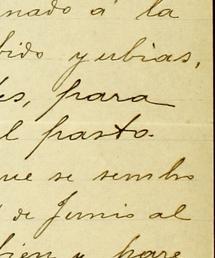 nado á la
bido y ubias,
es, para
l pasto.
ue se sembo
de Junio al
bien y pare